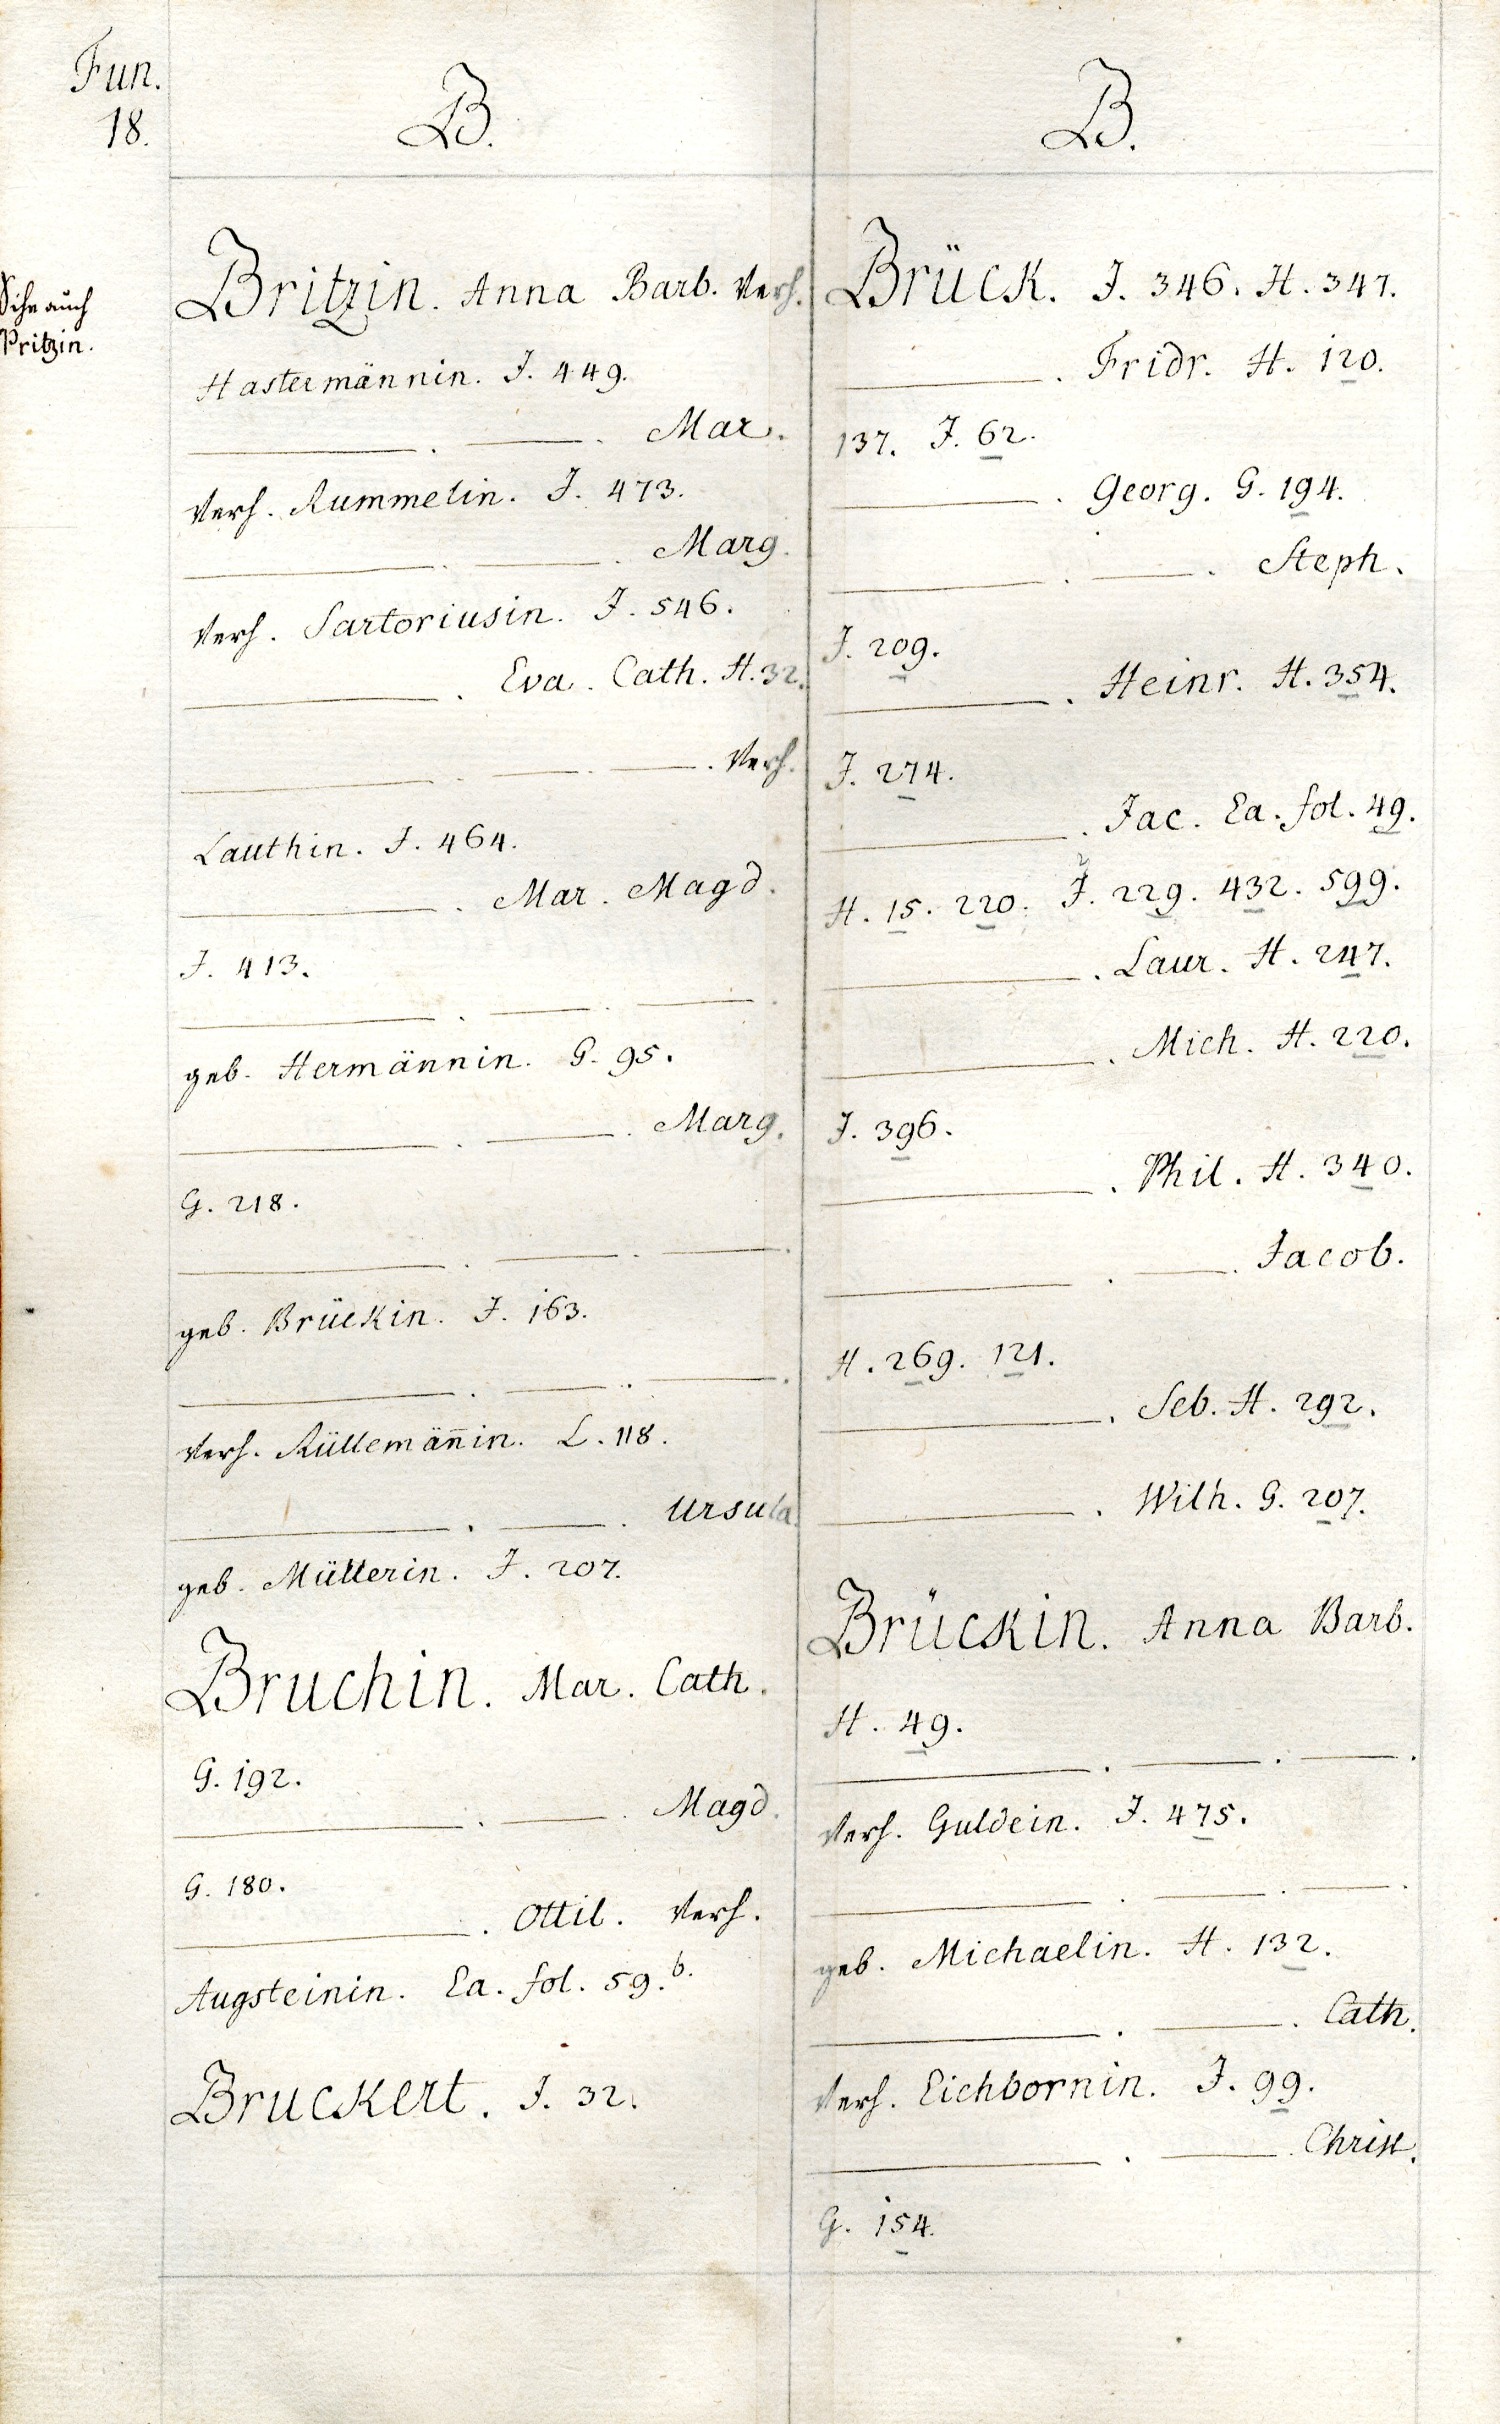 Fun.
18.
B.
Sihe auch
Pritzin.
Britzin. Anna Barb. Verh.
Hastermännin. J. 449.
——— . ——— . Mar.
Verh. Rummelin. J. 473.
——— . ——— . Marg.
Verh. Sartoriusin. J. 546.
——— . Eva. Cath. H. 32.
——— . ——— . ——— . Verh.
Lauthin. J. 464.
——— . Mar. Magd.
J. 413.
——— . ——— . ——— .
geb. Hermännin. G. 95.
——— . ——— . Marg.
G. 218.
——— . ——— . ——— .
geb. Brückin. J. 163.
——— . ——— . ——— .
Verh. Rüllemän̄in. L. 118.
——— . ——— . Ursula.
geb. Müllerin. J. 207.
Bruchin. Mar. Cath.
G. 192.
——— . ——— . Magd.
G. 180.
——— . Ottil. Verh.
Augsteinin. Ea. fol. 59.b.
Bruckert. J. 32.
B.
Brück. J. 346. H. 347.
——— . Fridr. H. 120.
137. J. 62.
——— . Georg. G. 194.
——— . ——— . Steph.
J. 209.
——— . Heinr. H. 354.
J. 274.
——— . Jac. Ea. fol. 49.
H. 15. 220. J. 229. 432. 599.
——— . Laur. H. 247.
——— . Mich. H. 220.
J. 396.
——— . Phil. H. 340.
——— . ——— . Jacob.
H. 269. 121.
——— . Seb. H. 292.
——— . Wilh. G. 207.
Brückin. Anna Barb.
H. 49.
——— . ——— . ——— .
Verh. Guldein. J. 475.
——— . ——— . ——— .
geb. Michaelin. H. 132.
——— . ——— . Cath.
Verh. Eichbornin. J. 99.
——— . ——— . Christ.
G. 154.